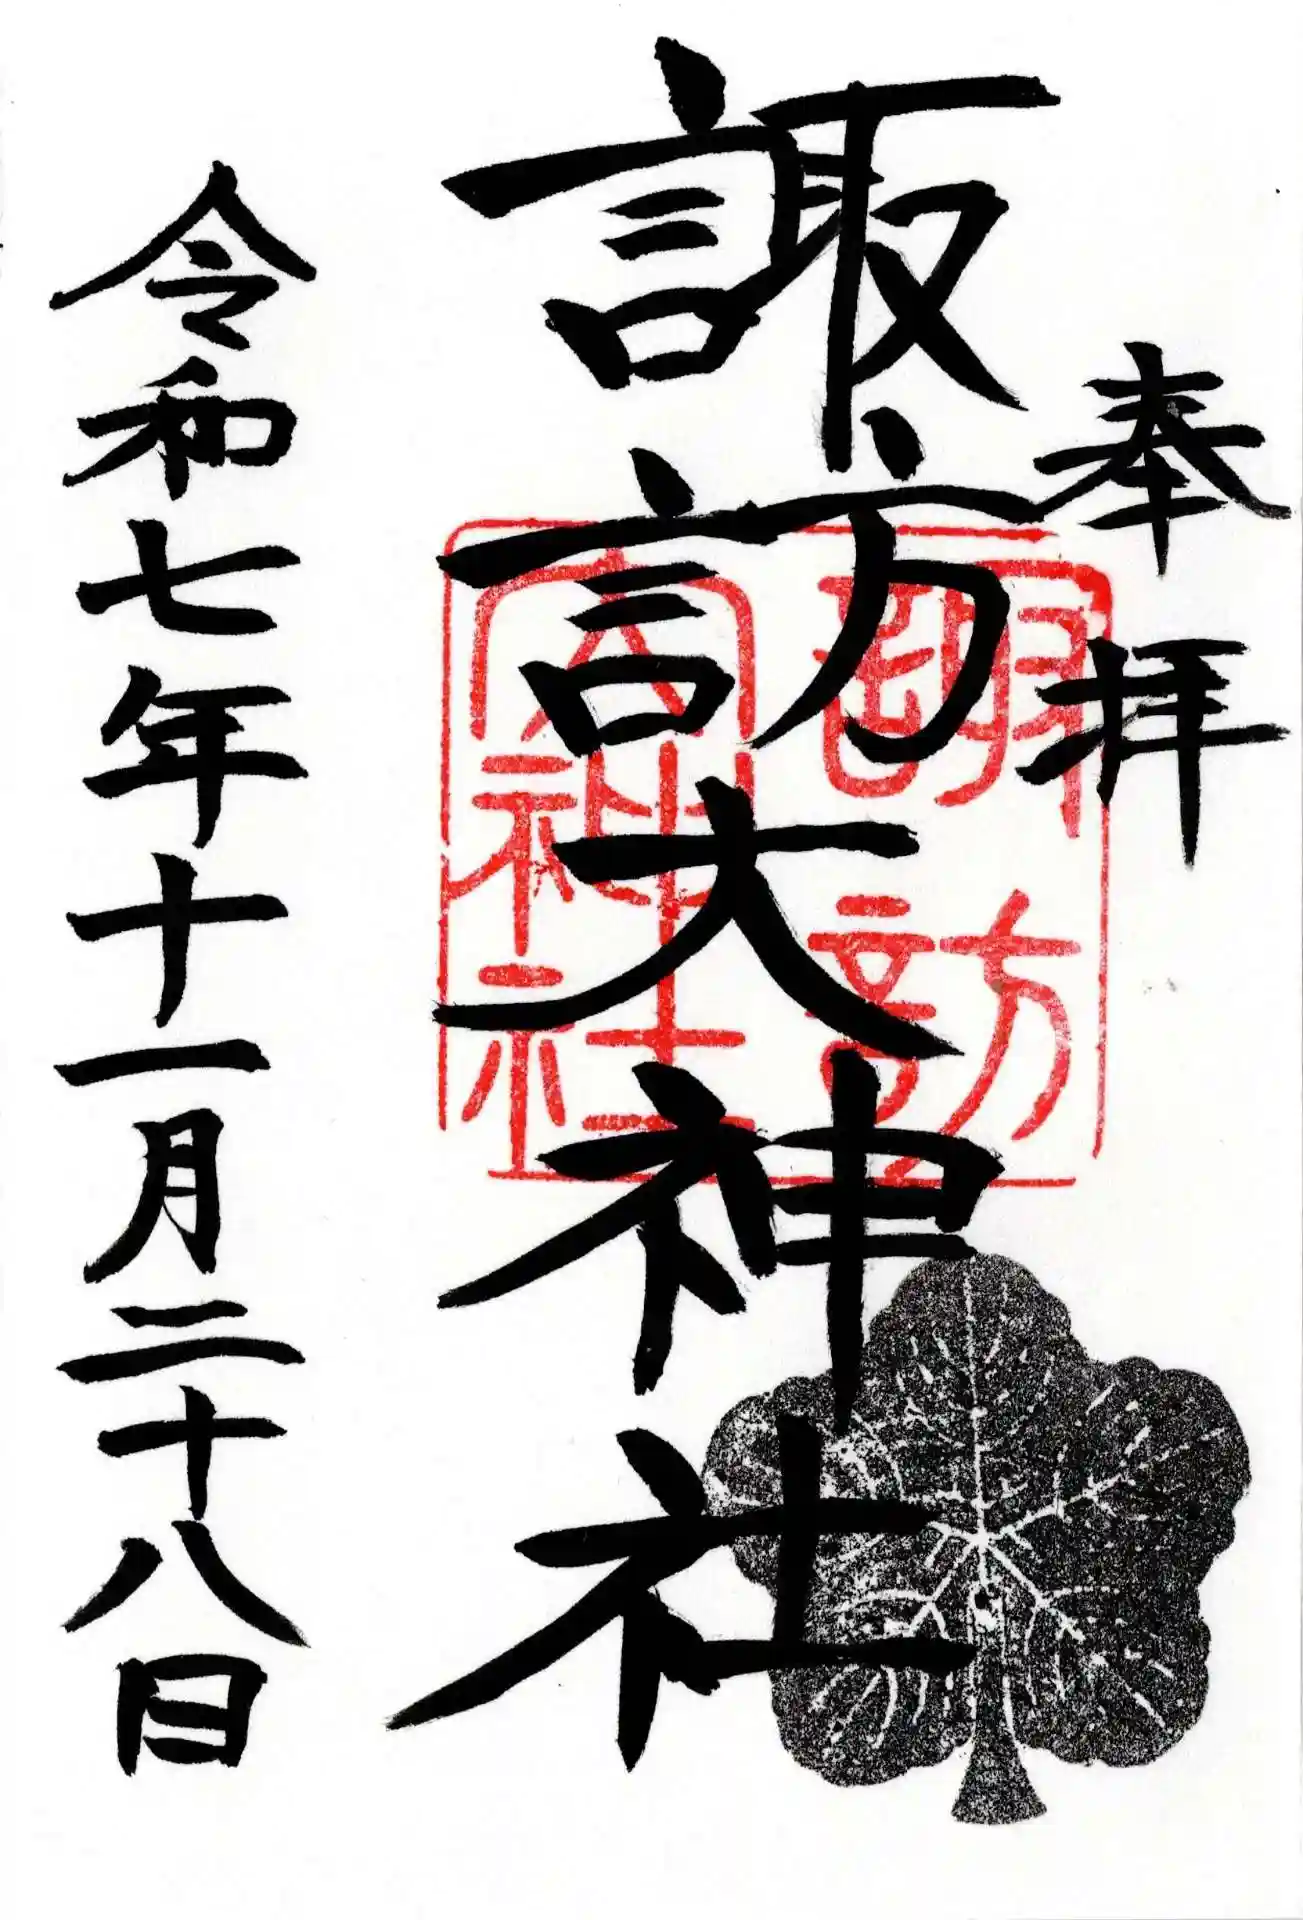 奉拝
諏訪大神社
諏訪
大神社
令和七年十一月二十八日